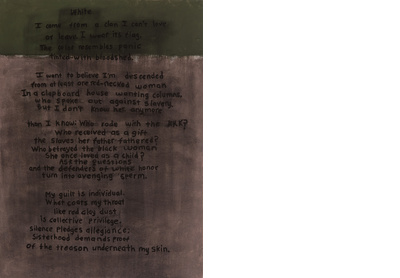 White
I come from a clan I can't love,
at least I smell its clay.
The
I want to believe I'm descended
from at least one red-necked woman
In a clapboard house wanting columns,
who spoke out against slavery.
But I don't know her anymore
than I know who rode with the KKK?
Who received as a gift
the slaves her father fathered?
Who betrayed the black woman
She once loved as a child?
Ask the questions
and the defenders of white honor
turn into avenging sperm.
My guilt is individual.
What coats my throat
like red clay dust
is collective privilege.
Silence pledges allegiance;
Sisterhood demands proof
of the treason underneath my skin.